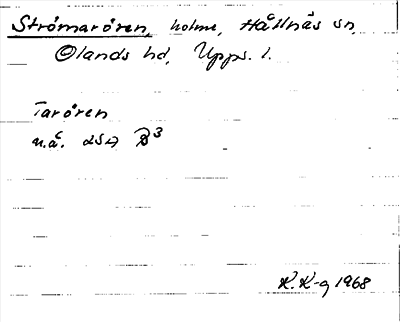 Strömarören, holme, Hållnäs sn,
Olands hd, Upps. l.
Tarören
u.å. LSA B3
K.K-g 1968